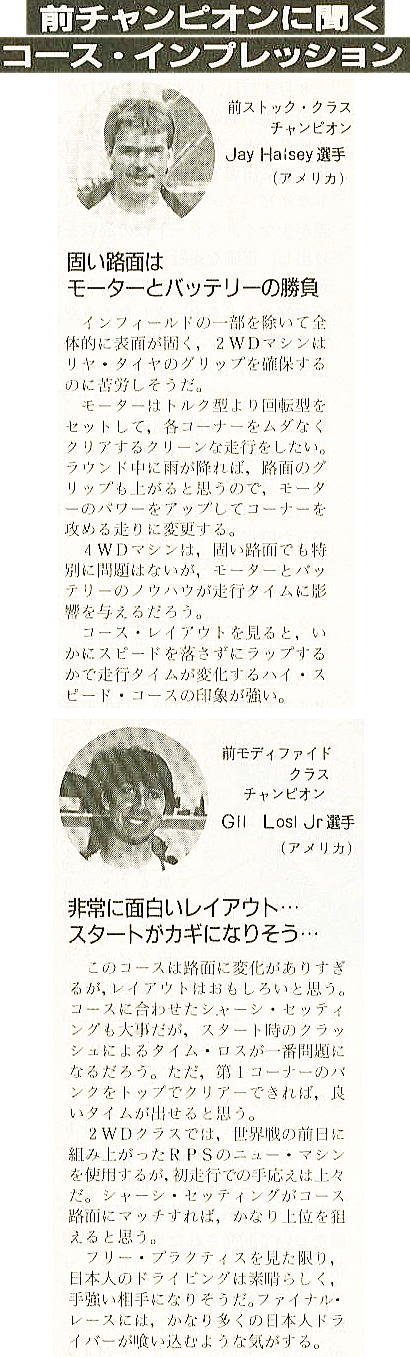 前チャンピオンに聞く
コース・インプレッション
前ストック・クラス
チャンピオン
Jay Halsey選手
(アメリカ)
固い路面は
モーターとバッテリーの勝負
インフィールドの一部を除いて全
体的に表面が固く，2WDマシンは
リヤ・タイヤのグリップを確保する
のに苦労しそうだ。
モーターはトルク型より回転型を
セットして，各コーナーをムダなく
クリアするクリーンな走行をしたい。
ラウンド中に雨が降れば，路面のグ
リップも上がると思うので，モータ
ーのパワーをアップしてコーナーを
攻める走りに変更する。
4WDマシンは，固い路面でも特
別に問題はないが，モーターとバッ
テリーのノウハウが走行タイムに影
響を与えるだろう。
コース・レイアウトを見ると，い
かにスピードを落さずにラップする
かで走行タイムが変化するハイ・ス
ピード・コースの印象が強い。
前モディファイド
クラス
チャンピオン
Gil Losi Jr選手
(アメリカ)
非常に面白いレイアウト…
スタートがカギになりそう…
このコースは路面に変化がありすぎ
るが，レイアウトはおもしろいと思う。
コースに合わせたシャーシ・セッティ
ングも大事だが，スタート時のクラッ
シュによるタイム・ロスが一番問題に
なるだろう。ただ，第1コーナーのバ
ンクをトップでクリアーできれば，良
いタイムが出せると思う。
2WDクラスでは，世界戦の前日に
組み上がったRPSのニュー・マシン
を使用するが，初走行での手応えは上々
だ。シャーシ・セッティングがコース
路面にマッチすれば，かなり上位を狙
えると思う。
フリー・プラクティスを見た限り，
日本人のドライビングは素晴らしく，
手強い相手になりそうだ。ファイナル・
レースには，かなり多くの日本人ドラ
イバーが喰い込むような気がする。